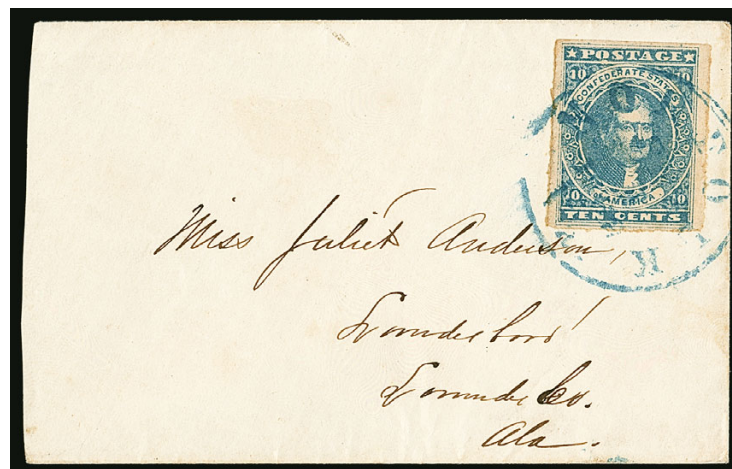 ★ POSTAGE ★
10 10
CONFEDERATE STATES
AMERICA
10 10
TEN CENTS
Miss Juliet Anderson,
Lowndesboro'
Lowndes Co.
Ala.